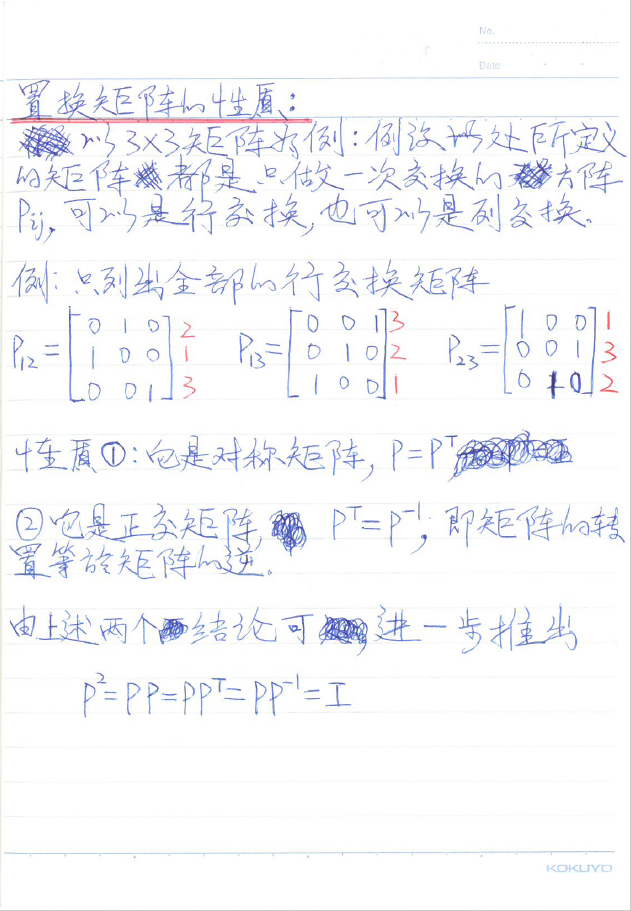 No.
Date
置换矩阵的性质:
以3×3矩阵为例:假设此处所定义
的矩阵都是只做一次交换的方阵
Pij, 可以是行交换,也可以是列交换。
例:只列出全部的行交换矩阵
P12 = [0 1 0] 2 P13 = [0 0 1] 3 P23 = [1 0 0] 1
[1 0 0] 1 [0 1 0] 2 [0 0 1] 3
[0 0 1] 3 [1 0 0] 1 [0 1 0] 2
性质①:它是对称矩阵, P=Pᵀ
②它是正交矩阵, Pᵀ=P⁻¹, 即矩阵的转
置等於矩阵的逆。
由上述两个结论可, 进一步推出
P²=PP=PPᵀ=PP⁻¹=I
KOKUYO